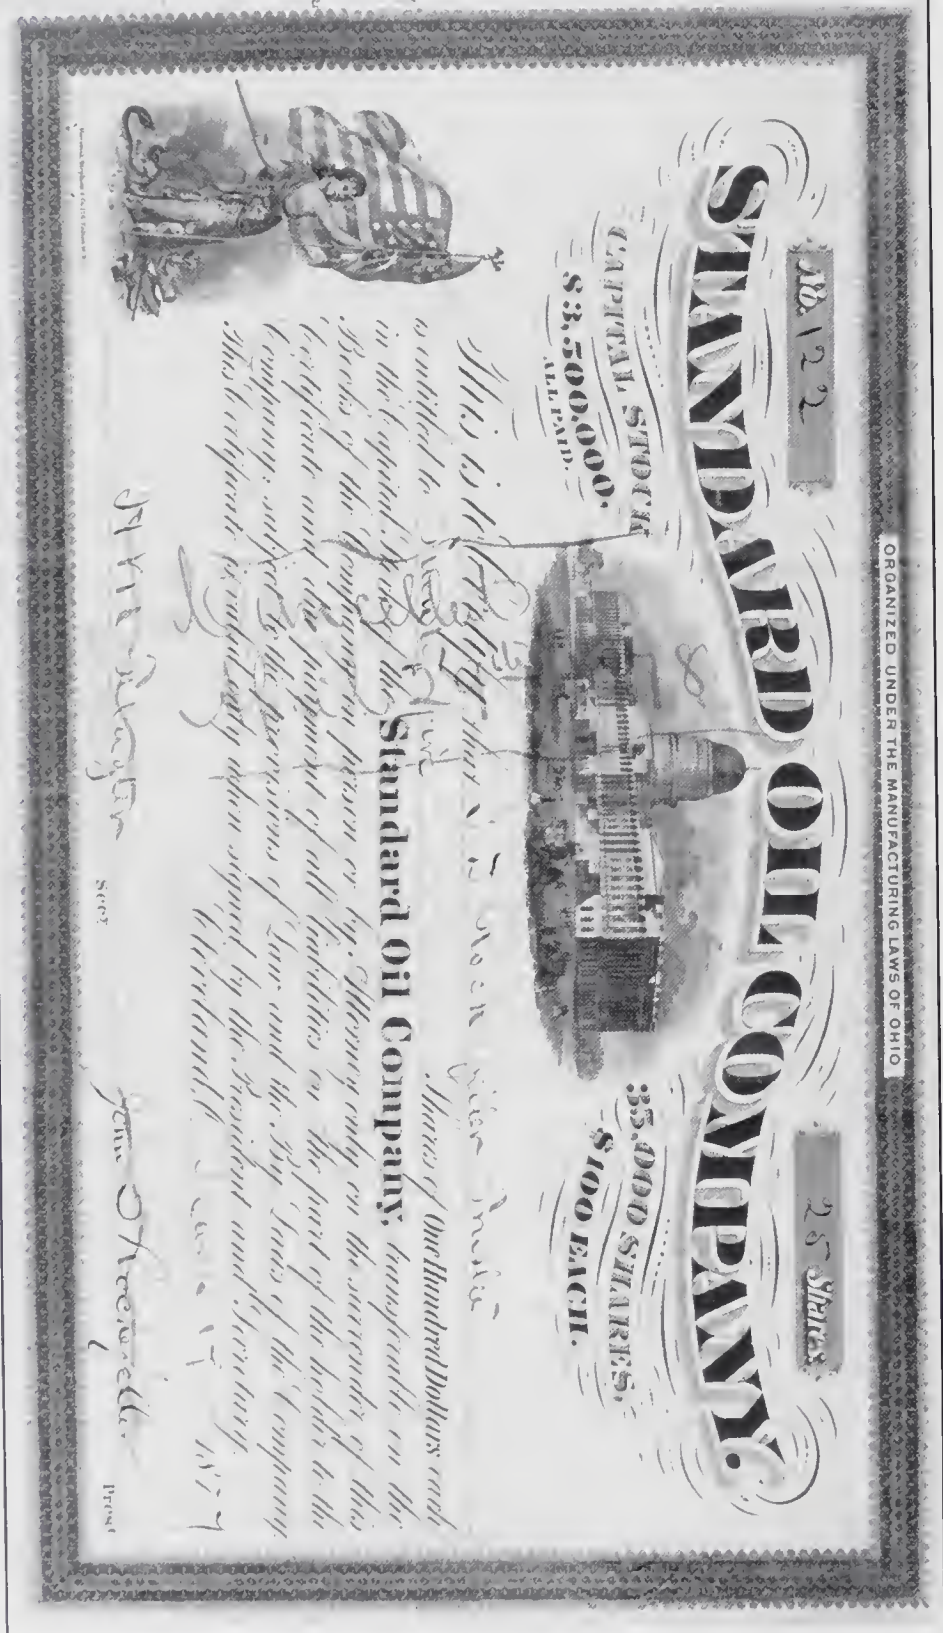 ORGANIZED UNDER THE MANUFACTURING LAWS OF OHIO
No. 122
25 Shares.
STANDARD OIL COMPANY.
CAPITAL STOCK
$3,500,000.
ALL PAID.
35,000 SHARES.
$100 EACH.
This is to certify that
is entitled to Shares of One Hundred Dollars each
in the Capital Stock of the Standard Oil Company, transferable on the
Books of the Company in person or by Attorney only on the surrender of this
Certificate and the payment of all liabilities on the part of the holder to the
Company, subject to the provisions of Law and the By Laws of the Company.
This Certificate is valid only when signed by the President and Secretary.
Cleveland
Cancelled
SECY
PREST